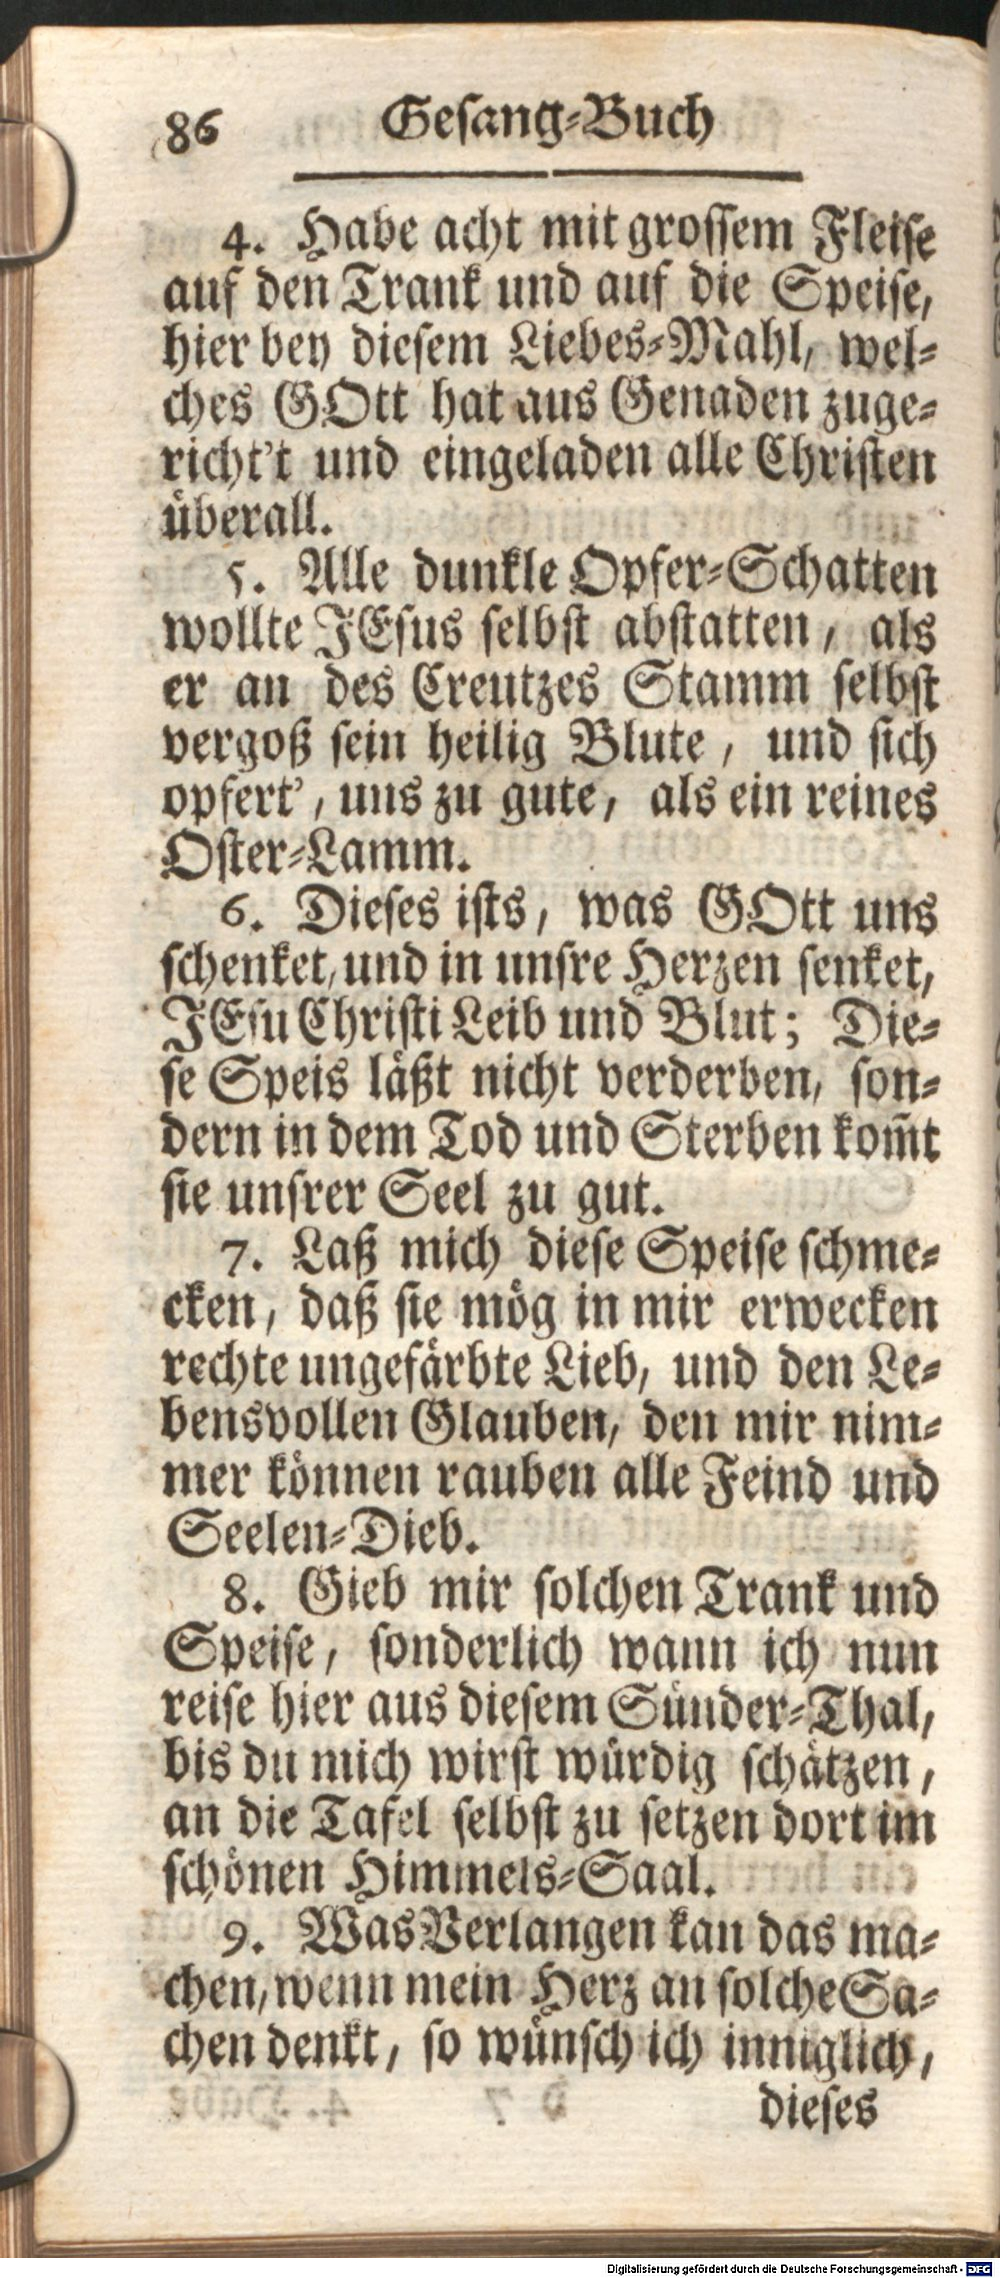 86 Gesang-Buch
4. Habe acht mit grossem Fleise
auf den Trank und auf die Speise,
hier bey diesem Liebes-Mahl, wel-
ches GOtt hat aus Genaden zuge-
richt't und eingeladen alle Christen
überall.
5. Alle dunkle Opfer-Schatten
wollte JEsus selbst abstatten, als
er an des Creutzes Stamm selbst
vergoß sein heilig Blute, und sich
opfert', uns zu gute, als ein reines
Oster-Lamm.
6. Dieses ists, was GOtt uns
schenket, und in unsre Herzen senket,
JEsu Christi Leib und Blut; Die-
se Speis läßt nicht verderben, son-
dern in dem Tod und Sterben kom̃t
sie unsrer Seel zu gut.
7. Laß mich diese Speise schme-
cken, daß sie mög in mir erwecken
rechte ungefärbte Lieb, und den Le-
bensvollen Glauben, den mir nim-
mer können rauben alle Feind und
Seelen-Dieb.
8. Gieb mir solchen Trank und
Speise, sonderlich wann ich nun
reise hier aus diesem Sünder-Thal,
bis du mich wirst würdig schätzen,
an die Tafel selbst zu setzen dort im
schönen Himmels-Saal.
9. Was Verlangen kan das ma-
chen, wenn mein Herz an solche Sa-
chen denkt, so wünsch ich inniglich,
dieses
Digitalisierung gefördert durch die Deutsche Forschungsgemeinschaft - DFG